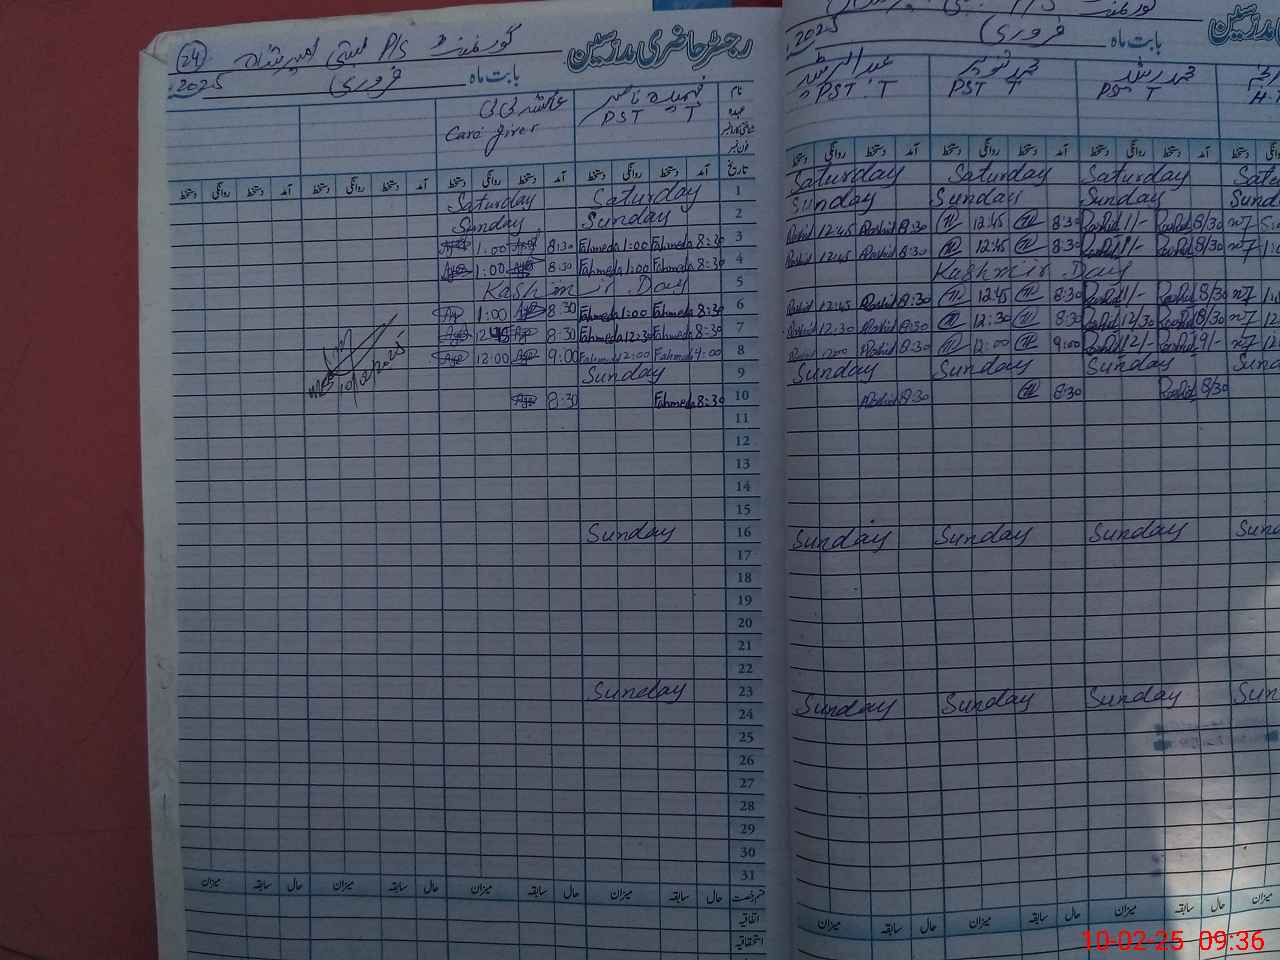 رجسٹر حاضری مدرسین
گورنمنٹ P/S بستی امیر شاہ
24
بابت ماہ فروری 2025
نام
عہدہ
فہمیدہ ناصر
PST T
عائشہ بی بی
Care giver
تاریخ آمد دستخط روانگی دستخط آمد دستخط روانگی دستخط آمد دستخط روانگی دستخط آمد دستخط روانگی دستخط
1 Saturday Saturday
2 Sunday Sunday
3 8:30 Fahmeda 1:00 Fahmeda 8:30 1:00
4 8:30 Fahmeda 1:00 Fahmeda 8:30 1:00
5 Kashmir Day
6 8:30 Fahmeda 1:00 Fahmeda 8:30 1:00
7 8:30 Fahmeda 12:30 Fahmeda 8:30 12:45
8 9:00 Fahmeda 12:00 Fahmeda 9:00 12:00
9 Sunday
10 8:30 Fahmeda 8:30
10/02/2025
11
12
13
14
15
16 Sunday
17
18
19
20
21
22
23 Sunday
24
25
26
27
28
29
30
31
حال سابقہ میزان حال سابقہ میزان حال سابقہ میزان حال سابقہ میزان
قسم رخصت
اتفاقیہ
استحقاقیہ
بابت ماہ فروری 2025
محمد رشید
PST T
محمد تنویر
PST T
عبدالرشید
PST T
H.T
آمد دستخط روانگی دستخط آمد دستخط روانگی دستخط آمد دستخط روانگی دستخط
Saturday Saturday Saturday
Sunday Sunday Sunday Sunday
Rashid 12:45 Rashid 8:30 12:45 8:30 Rashid 1/- Rashid 8/30
Rashid 12:45 Rashid 8:30 12:45 8:30 Rashid 1/- Rashid 8/30
Kashmir Day
Rashid 12:45 Rashid 8:30 12:45 8:30 Rashid 1/- Rashid 8/30
Rashid 12:30 Rashid 8:30 12:30 8:30 Rashid 12/30 Rashid 8/30
Rashid 12:00 Rashid 8:30 12:00 9:00 Rashid 12/- Rashid 9/-
Sunday Sunday Sunday
Rashid 8:30 8:30 Rashid 8/30
Sunday Sunday Sunday
Sunday Sunday Sunday
حال سابقہ میزان حال سابقہ میزان حال سابقہ میزان
10-02-25 09:36